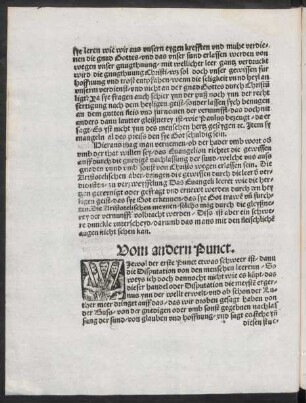 sye leren wie wir aus unsern eygen krefften und muhe verdie-
nen die gnad Gottes/ und das unser sund erlassen werden von
wegen unser gnugthuung/ mit welcher leer gantz verdruckt
wird die gnugthuung Christi/ wo sol doch unser gewissen fur
hoffnung und trost entpfahen/ wenn die seligkeit und heyl an
unserm verdienst/ und nicht an der gnad Gottes durch Christū
ligt? Ja sye fragen auch schier ynn der puß noch ynn der recht
fertigung nach dem heyligen geist/ sonder lassen sych benugen
an dem gutten fleis und furnemen der vernunfft/ doch
anders dann lautter gleissnerey ist/ wie Paulus bezeugt/ da er
sagt/ Es yst nicht ynn des menschen hertz gestygen ꝛc. Item sy
mangeln al des preiß den sye Got schuldig sein.
Hieraus mag man vernemen/ ob der hader umb wort ob
umb der that willen sey/ das Euangelion richtet die gewissen
auff durch die gnedige nachlassung der sund/ welche uns auß
gnaden und umb sonst von Christo wegen erlassen sein. Die
Aristotelischen aber dringen die gewissen durch die leer der
verdienst/ zu verzweyfflung Das Euangeli leeret wie die hertzen
gereyniget oder gefeget und ernewt werden durch den hey
ligen geist/ das sye Got erkennen/ das sye Got trawē uñ furch
ten. Die Aristotelischen meynen solchs mög durch die gleiß-
nerey der vernunfft volbracht werden/ Diß ist aber ein schwe-
re dunckle unterscheyd/ darumb das mans mit den fleischliche
augen nicht sehen kan.
Vom andern Punct.
Wiewol der erste Punct etwas schwerer ist/ dann
die Disputation von den menschen leeren/ So
weyß ich doch dannocht nicht wie es kumt/ das
dieser handel oder Disputation die meyste erger-
nus ynn der welt erweckt/ und ob schon der Lu-
ther meer dringet auff das/ das wir droben gesagt haben von
der Buss/ von der gnedigen oder umb sonst gegebnen nachlas
sung der sund/ von glauben und hoffnung/ und sagt es stehe yñ
diesen stuc